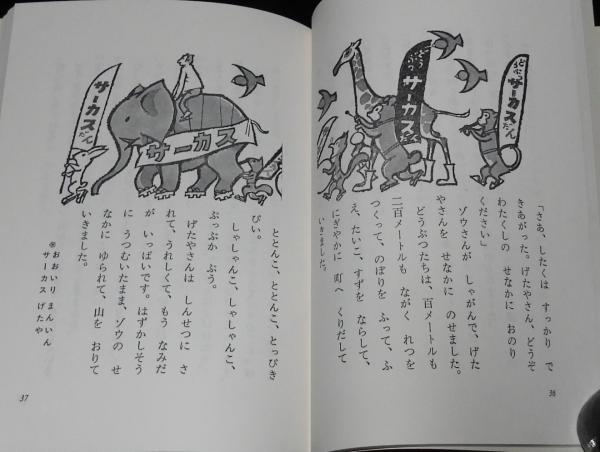 どうぶつ
サーカスだん
サーカスだん
「さあ、したくは　すっかり　で
きあがった。げたやさん、どうぞ
わたくしの　せなかに　おのり
ください」
ゾウさんが　しゃがんで、げた
やさんを　せなかに　のせました。
どうぶつたちは、百メートルも
二百メートルも　ながく　れつを
つくって、のぼりを　ふって、ふ
え、たいこ、すずを　ならして、
にぎやかに　町へ　くりだして
いきました。
36
サーカスだん
サーカス
ととんこ、ととんこ、とっぴき
ぴい。
しゃしゃんこ、しゃしゃんこ、
ぷっぷか　ぷう。
げたやさんは　しんせつに　さ
れて、うれしくて、もう　なみだ
が　いっぱいです。はずかしそう
に　うつむいたまま、ゾウの　せ
なかに　ゆられて、山を　おりて
いきました。
※おおいり　まんいん
サーカス　げたや
37